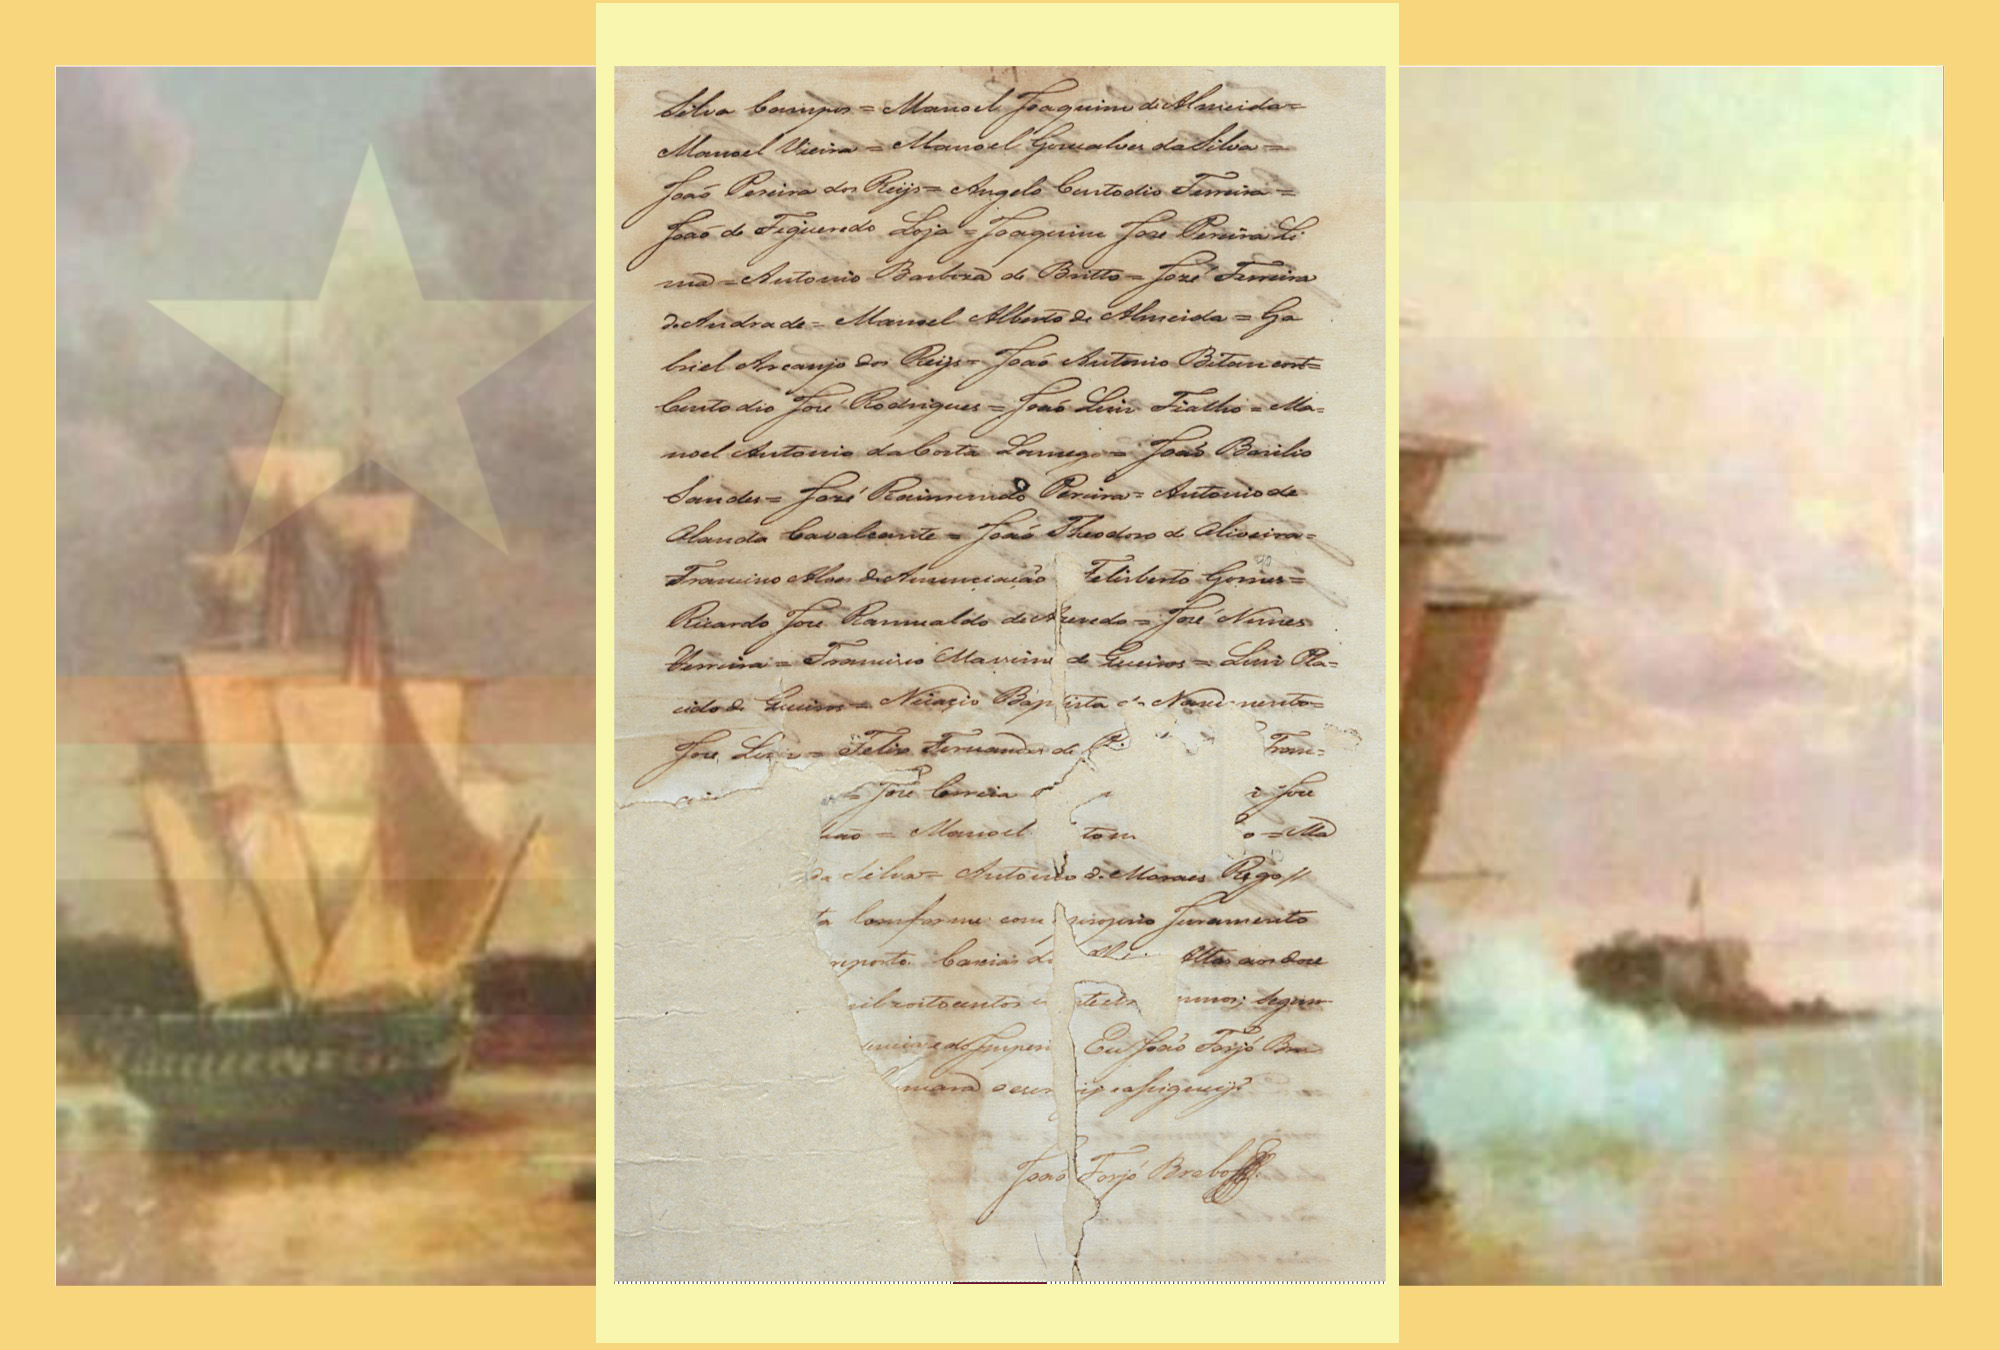 Silva Campos = Manoel Joaquim de Almeida =
Manoel Vieira = Manoel Gonsalves da Silva =
João Pereira dos Reijs = Angelo Custodio Ferreira =
João de Figueredo Loja = Joaquim Jose Pereira Li
ma = Antonio Barboza de Britto = Jozé Ferreira
de Andrade = Manoel Alberto de Almeida = Ga
briel Arcanjo dos Reijs = João Antonio Bitancort =
Custodio José Rodrigues = João Luis Fialho = Ma=
noel Antonio da Costa Lamego = João Bazilio
Sandes = José Raimundo Pereira = Antonio de
Olanda Cavalcante = João Theodoro de Oliveira =
Francisco Alves da Anunciação Felisberto Gomes =
Ricardo José Ramualdo de Azevedo = José Nunes
Ferreira = Francisco de Queiros = Luis Pla=
cido de Queiros = Nicacio Baptista Nascimento =
Jose = Felix Fernandes de Fran=
= José Correia José
= Manoel = Ma
da Silva = Antonio de Moraes Rego //
Conforme com proprio Juramento
reporto. Caxias de Altas aos doze
oitocentos e
Eu João Torjó Bra
escr e assigneij
João Torjó Brabo